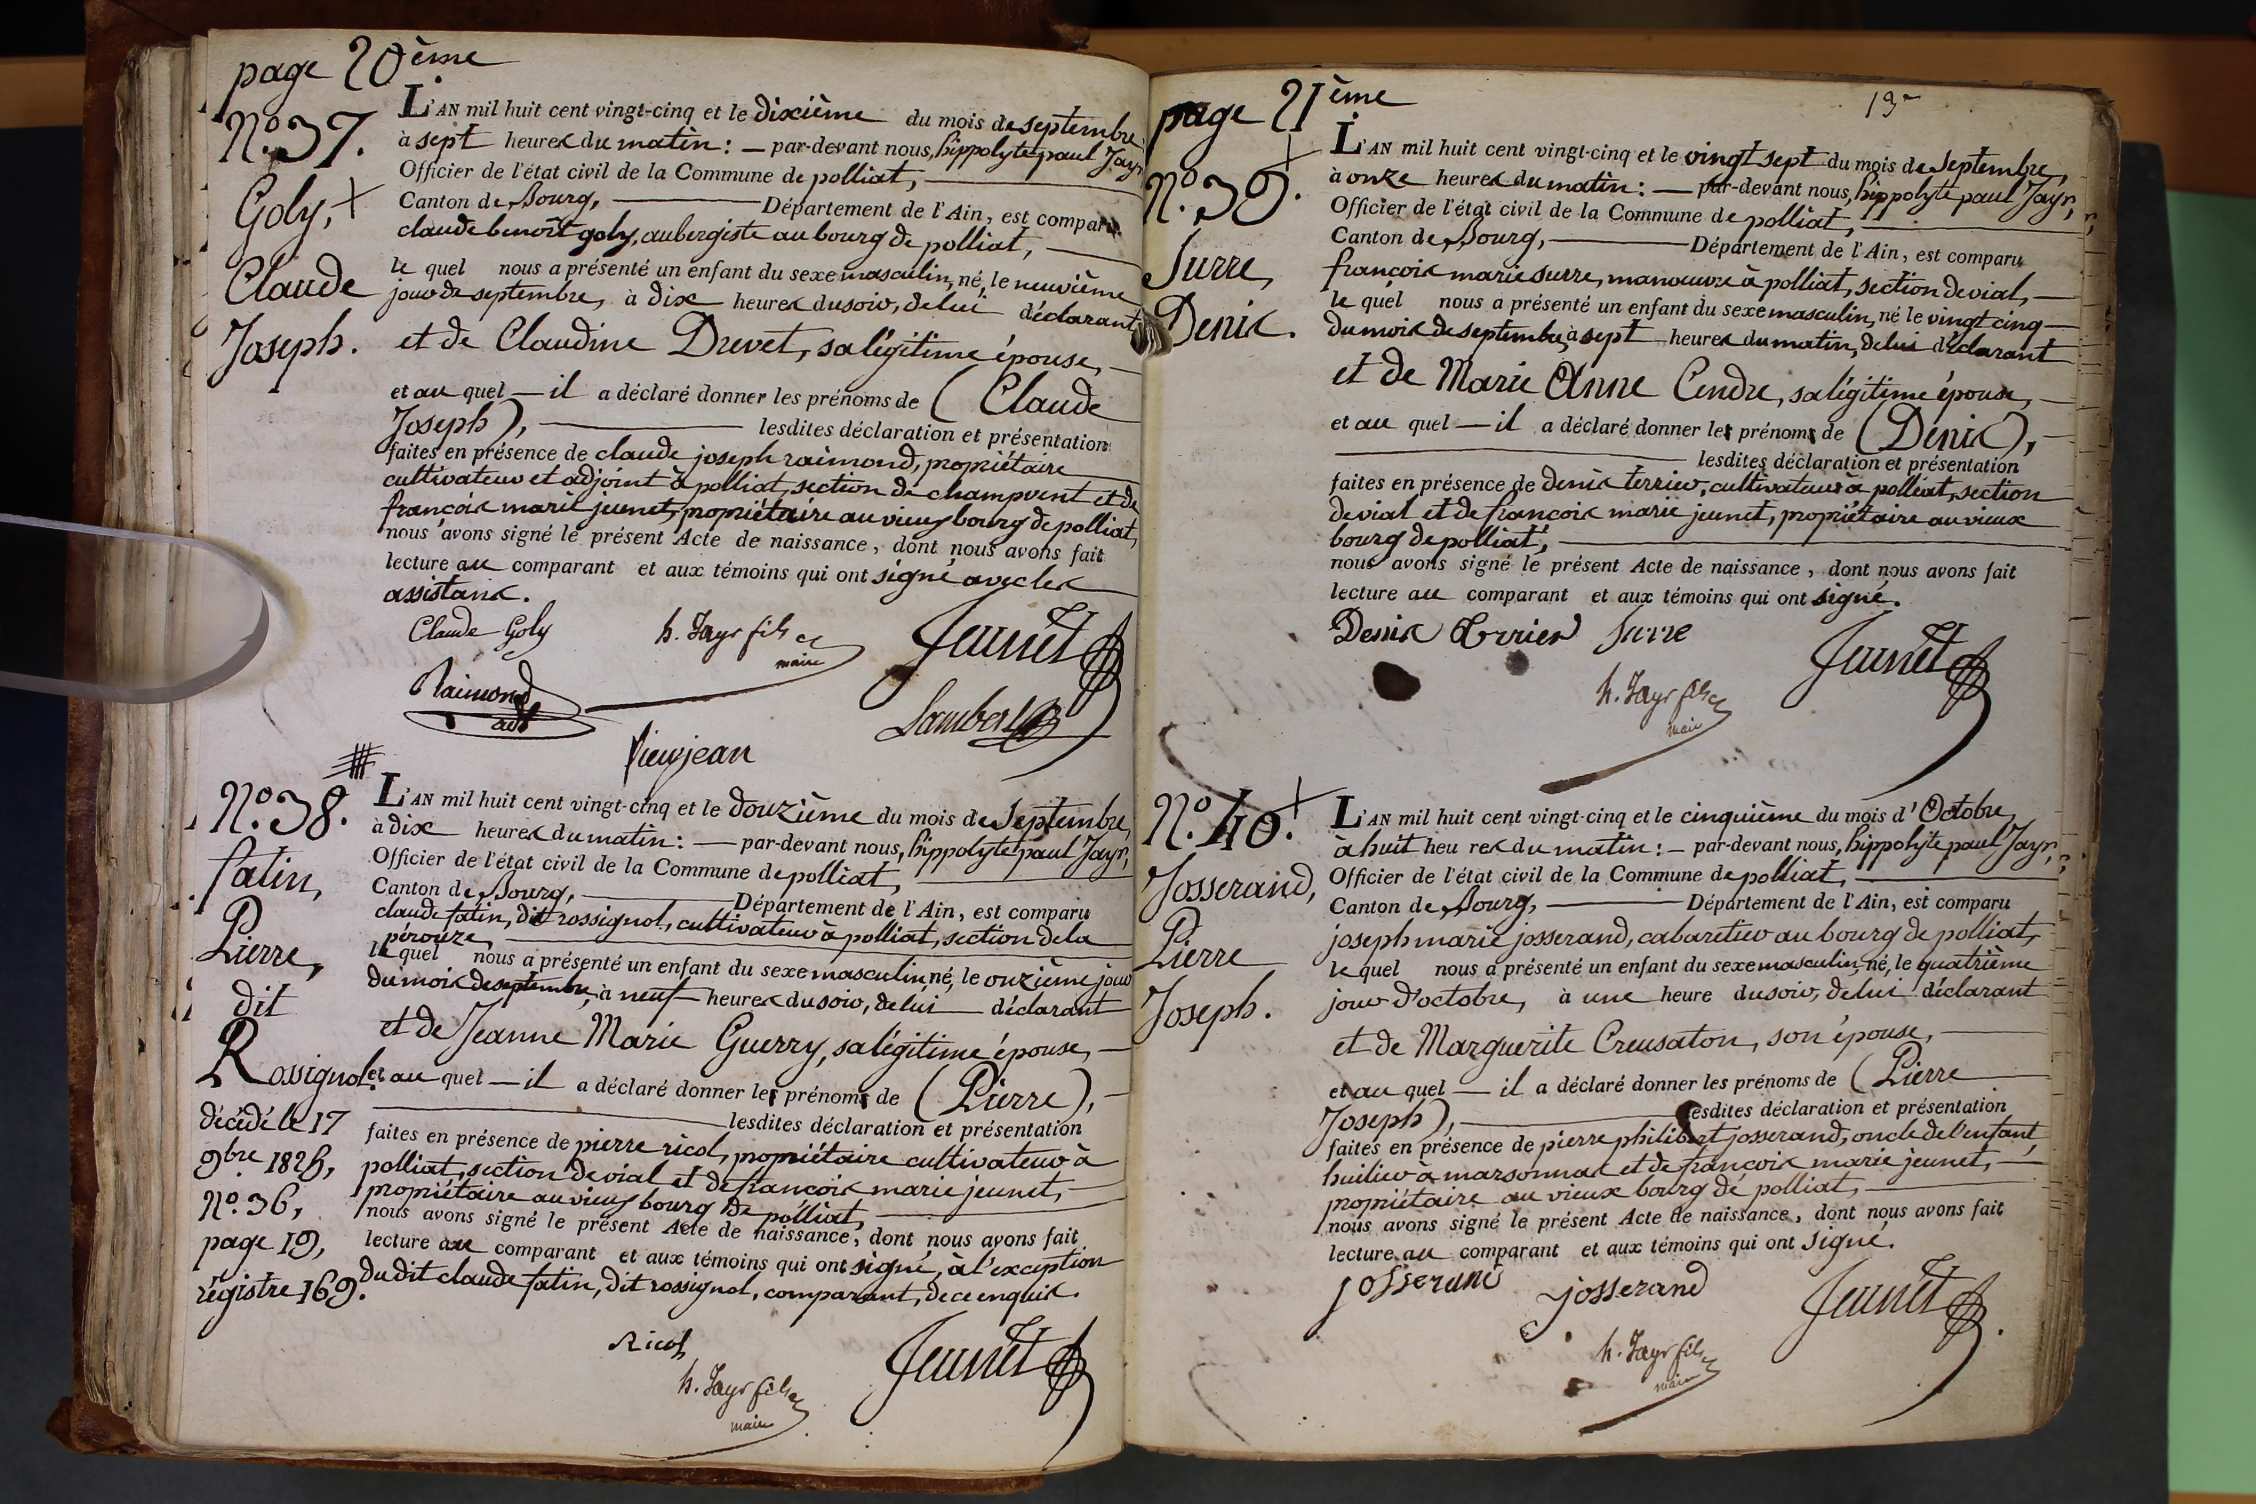 page 20ème
N.º 37.
Goly,
Claude
Joseph.
L'AN mil huit cent vingt-cinq et le dixième du mois de septembre
à sept heures du matin : — par-devant nous, hippolyte paul Jayr,
Officier de l'état civil de la Commune de polliat,
Canton de Bourg, Département de l'Ain, est comparu
claude benoît goly, aubergiste au bourg de polliat,
le quel nous a présenté un enfant du sexe masculin, né, le neuvième
jour de septembre, à dix heures du soir, de lui déclarant
et de Claudine Drevet, sa légitime épouse,
et au quel — il a déclaré donner les prénoms de (Claude
Joseph), lesdites déclaration et présentation
faites en présence de claude joseph raimond, propriétaire
cultivateur et adjoint à polliat, section de champvent et de
françois marie jeunet, propriétaire au vieux bourg de polliat,
nous avons signé le présent Acte de naissance, dont nous avons fait
lecture au comparant et aux témoins qui ont signé avec les
assistans.
Claude Goly h. Jayr fils Jeunet
maire
Raimond
adt Lambert
Vieujean
N.º 38.
fatin,
Pierre,
dit
Rossignol.
décédé le 17
9bre 1825,
Nº. 36,
page 19,
régistre 169.
L'AN mil huit cent vingt-cinq et le douzième du mois de Septembre,
à dix heures du matin : — par-devant nous, hippolyte paul Jayr,
Officier de l'état civil de la Commune de polliat,
Canton de Bourg, Département de l'Ain, est comparu
claude fatin, dit rossignol, cultivateur à polliat, section de la
pérouze,
le quel nous a présenté un enfant du sexe masculin né, le onzième jour
du mois de septembre, à neuf heures du soir, de lui déclarant
et de Jeanne Marie Guerry, sa légitime épouse,
et au quel — il a déclaré donner les prénoms de (Pierre),
lesdites déclaration et présentation
faites en présence de pierre ricol, propriétaire cultivateur à
polliat, section de vial et de françois marie jeunet,
propriétaire au vieux bourg de polliat,
nous avons signé le présent Acte de naissance, dont nous avons fait
lecture au comparant et aux témoins qui ont signé, à l'exception
du dit claude fatin, dit rossignol, comparant, de ce enquis.
Ricol
h. Jayr fils Jeunet
maire
page 21ème
N.º 39.
Surre,
Denis.
L'AN mil huit cent vingt-cinq et le vingt sept du mois de septembre,
à onze heures du matin : — par-devant nous, hippolyte paul Jayr,
Officier de l'état civil de la Commune de polliat,
Canton de Bourg, Département de l'Ain, est comparu
françois marie surre, manœuvre à polliat, section de vial,
le quel nous a présenté un enfant du sexe masculin, né le vingt cinq
du mois de septembre, à sept heures du matin, de lui déclarant
et de Marie Anne Cendre, sa légitime épouse,
et au quel — il a déclaré donner les prénoms de (Denis),
lesdites déclaration et présentation
faites en présence de denis terrier, cultivateur à polliat, section
de vial et de françois marie jeunet, propriétaire au vieux
bourg de polliat,
nous avons signé le présent Acte de naissance, dont nous avons fait
lecture au comparant et aux témoins qui ont signé.
Denis Surre Jeunet
h. Jayr fils
maire
N.º 40.
Josserand,
Pierre
Joseph.
L'AN mil huit cent vingt-cinq et le cinquième du mois d'Octobre,
à huit heures du matin : — par-devant nous, hippolyte paul Jayr,
Officier de l'état civil de la Commune de polliat,
Canton de Bourg, Département de l'Ain, est comparu
joseph marie josserand, cabaretier au bourg de polliat,
le quel nous a présenté un enfant du sexe masculin, né, le quatrième
jour d'octobre, à une heure du soir, de lui déclarant
et de Marguerite Creusaton, son épouse,
et au quel — il a déclaré donner les prénoms de (Pierre
Joseph), lesdites déclaration et présentation
faites en présence de pierre philibert josserand, oncle de l'enfant,
huilier à marsonnas et de françois marie jeunet,
propriétaire au vieux bourg de polliat,
nous avons signé le présent Acte de naissance, dont nous avons fait
lecture au comparant et aux témoins qui ont signé.
josserand josserand Jeunet
h. Jayr fils
maire